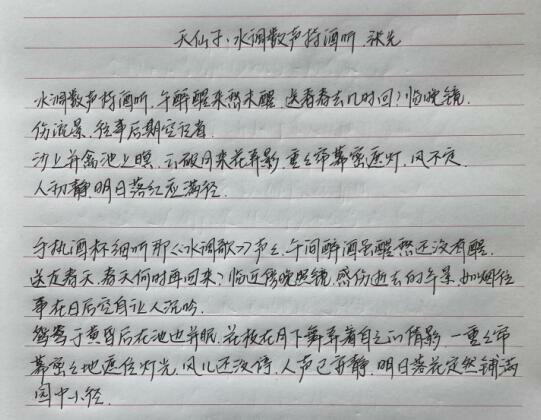 天仙子·水调数声持酒听 张先
水调数声持酒听,午醉醒来愁未醒。送春春去几时回?临晚镜,
伤流景,往事后期空记省。
沙上并禽池上暝,云破月来花弄影。重重帘幕密遮灯,风不定,
人初静,明日落红应满径。
手执酒杯细听那《水调歌》声声,午间醉酒虽醒愁还没有醒。
送走春天,春天何时再回来?临近傍晚照镜,感伤逝去的年景,如烟往
事在日后空自让人沉吟。
鸳鸯于黄昏后在池边并眠,花枝在月下舞弄着自己的倩影。一重重帘
幕密密地遮住灯光,风儿还没停,人声已安静,明日落花定然铺满
园中小径。